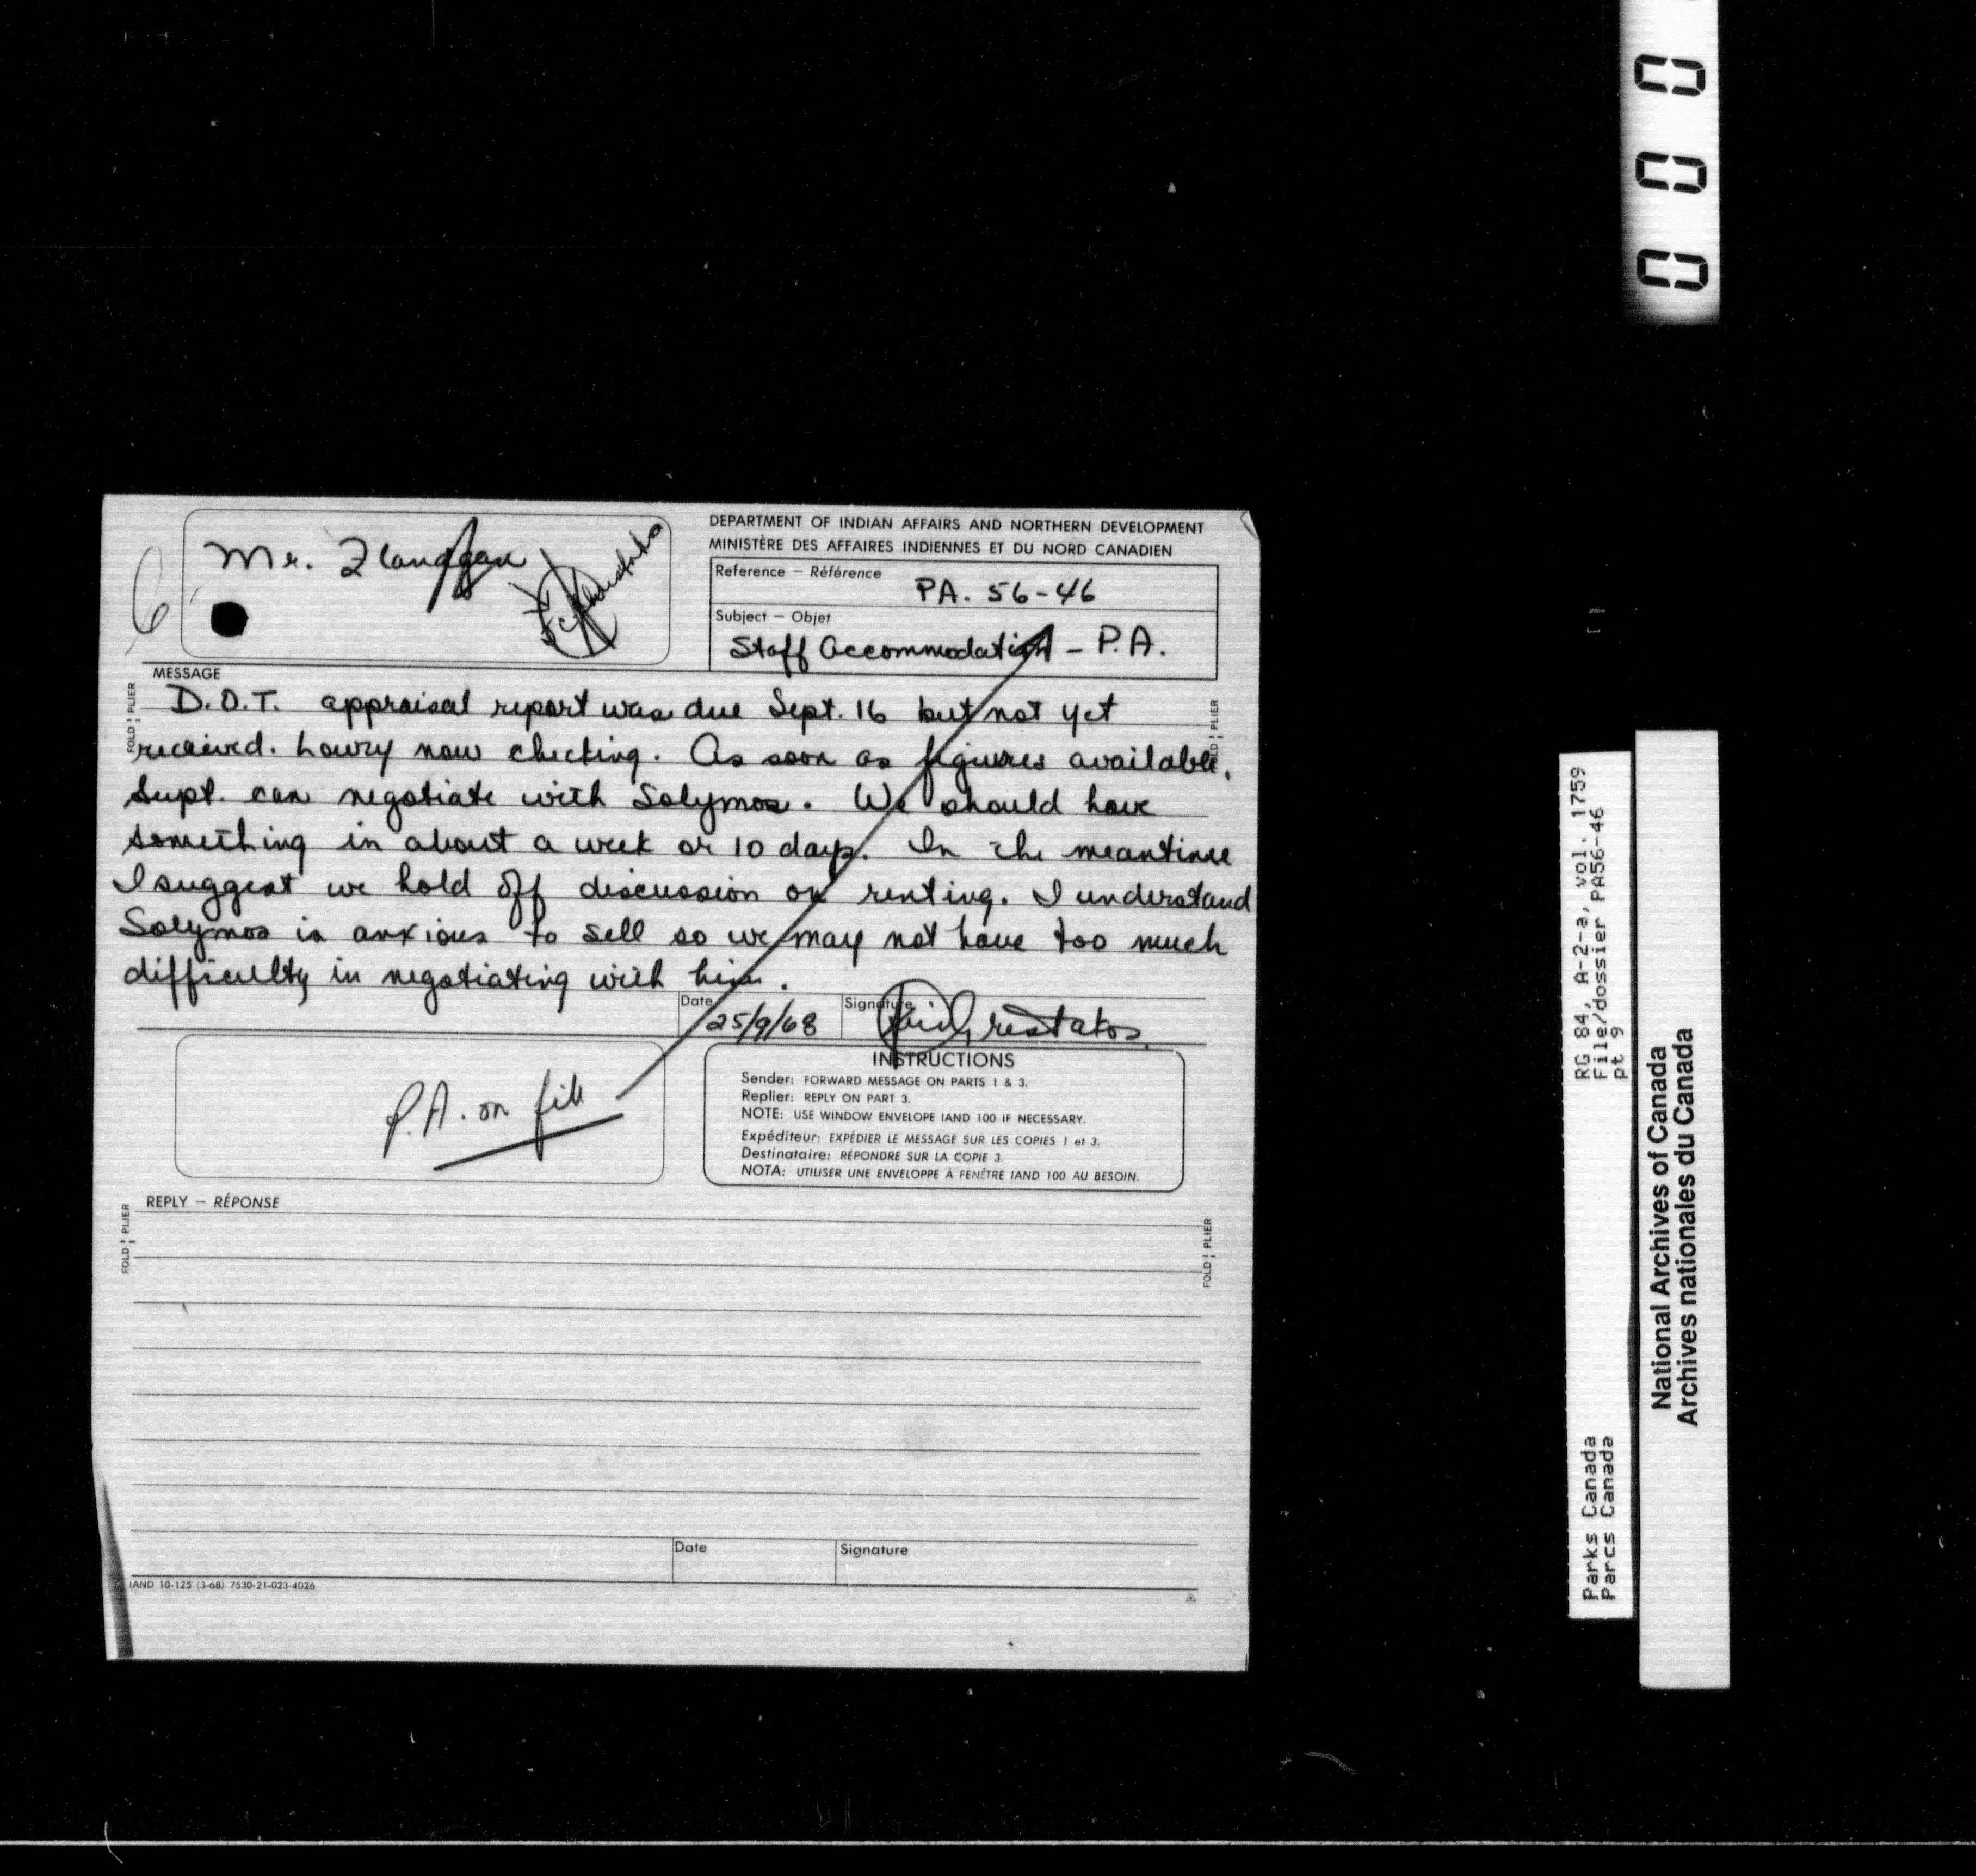 0 0 0
6
Mr. Flanagan
DEPARTMENT OF INDIAN AFFAIRS AND NORTHERN DEVELOPMENT
MINISTÈRE DES AFFAIRES INDIENNES ET DU NORD CANADIEN
Reference – Référence
PA. 56-46
Subject – Objet
Staff Accommodation – P.A.
MESSAGE
FOLD PLIER
FOLD PLIER
D.O.T. appraisal report was due Sept. 16 but not yet
received. Lowry now checking. As soon as figures available,
Supt. can negotiate with Solymos. We should have
something in about a week or 10 days. In the meantime
I suggest we hold off discussion on renting. I understand
Solymos is anxious to sell so we may not have too much
difficulty in negotiating with him.
Date
25/9/68
Signature
P.A. on file
INSTRUCTIONS
Sender: FORWARD MESSAGE ON PARTS 1 & 3.
Replier: REPLY ON PART 3.
NOTE: USE WINDOW ENVELOPE IAND 100 IF NECESSARY.
Expéditeur: EXPÉDIER LE MESSAGE SUR LES COPIES 1 et 3.
Destinataire: RÉPONDRE SUR LA COPIE 3.
NOTA: UTILISER UNE ENVELOPPE À FENÊTRE IAND 100 AU BESOIN.
REPLY – RÉPONSE
FOLD PLIER
FOLD PLIER
Date
Signature
IAND 10-125 (3-68) 7530-21-023-4026
RG 84, A-2-a, vol. 1759
File/dossier PA56-46
pt 9
Parks Canada
Parcs Canada
National Archives of Canada
Archives nationales du Canada